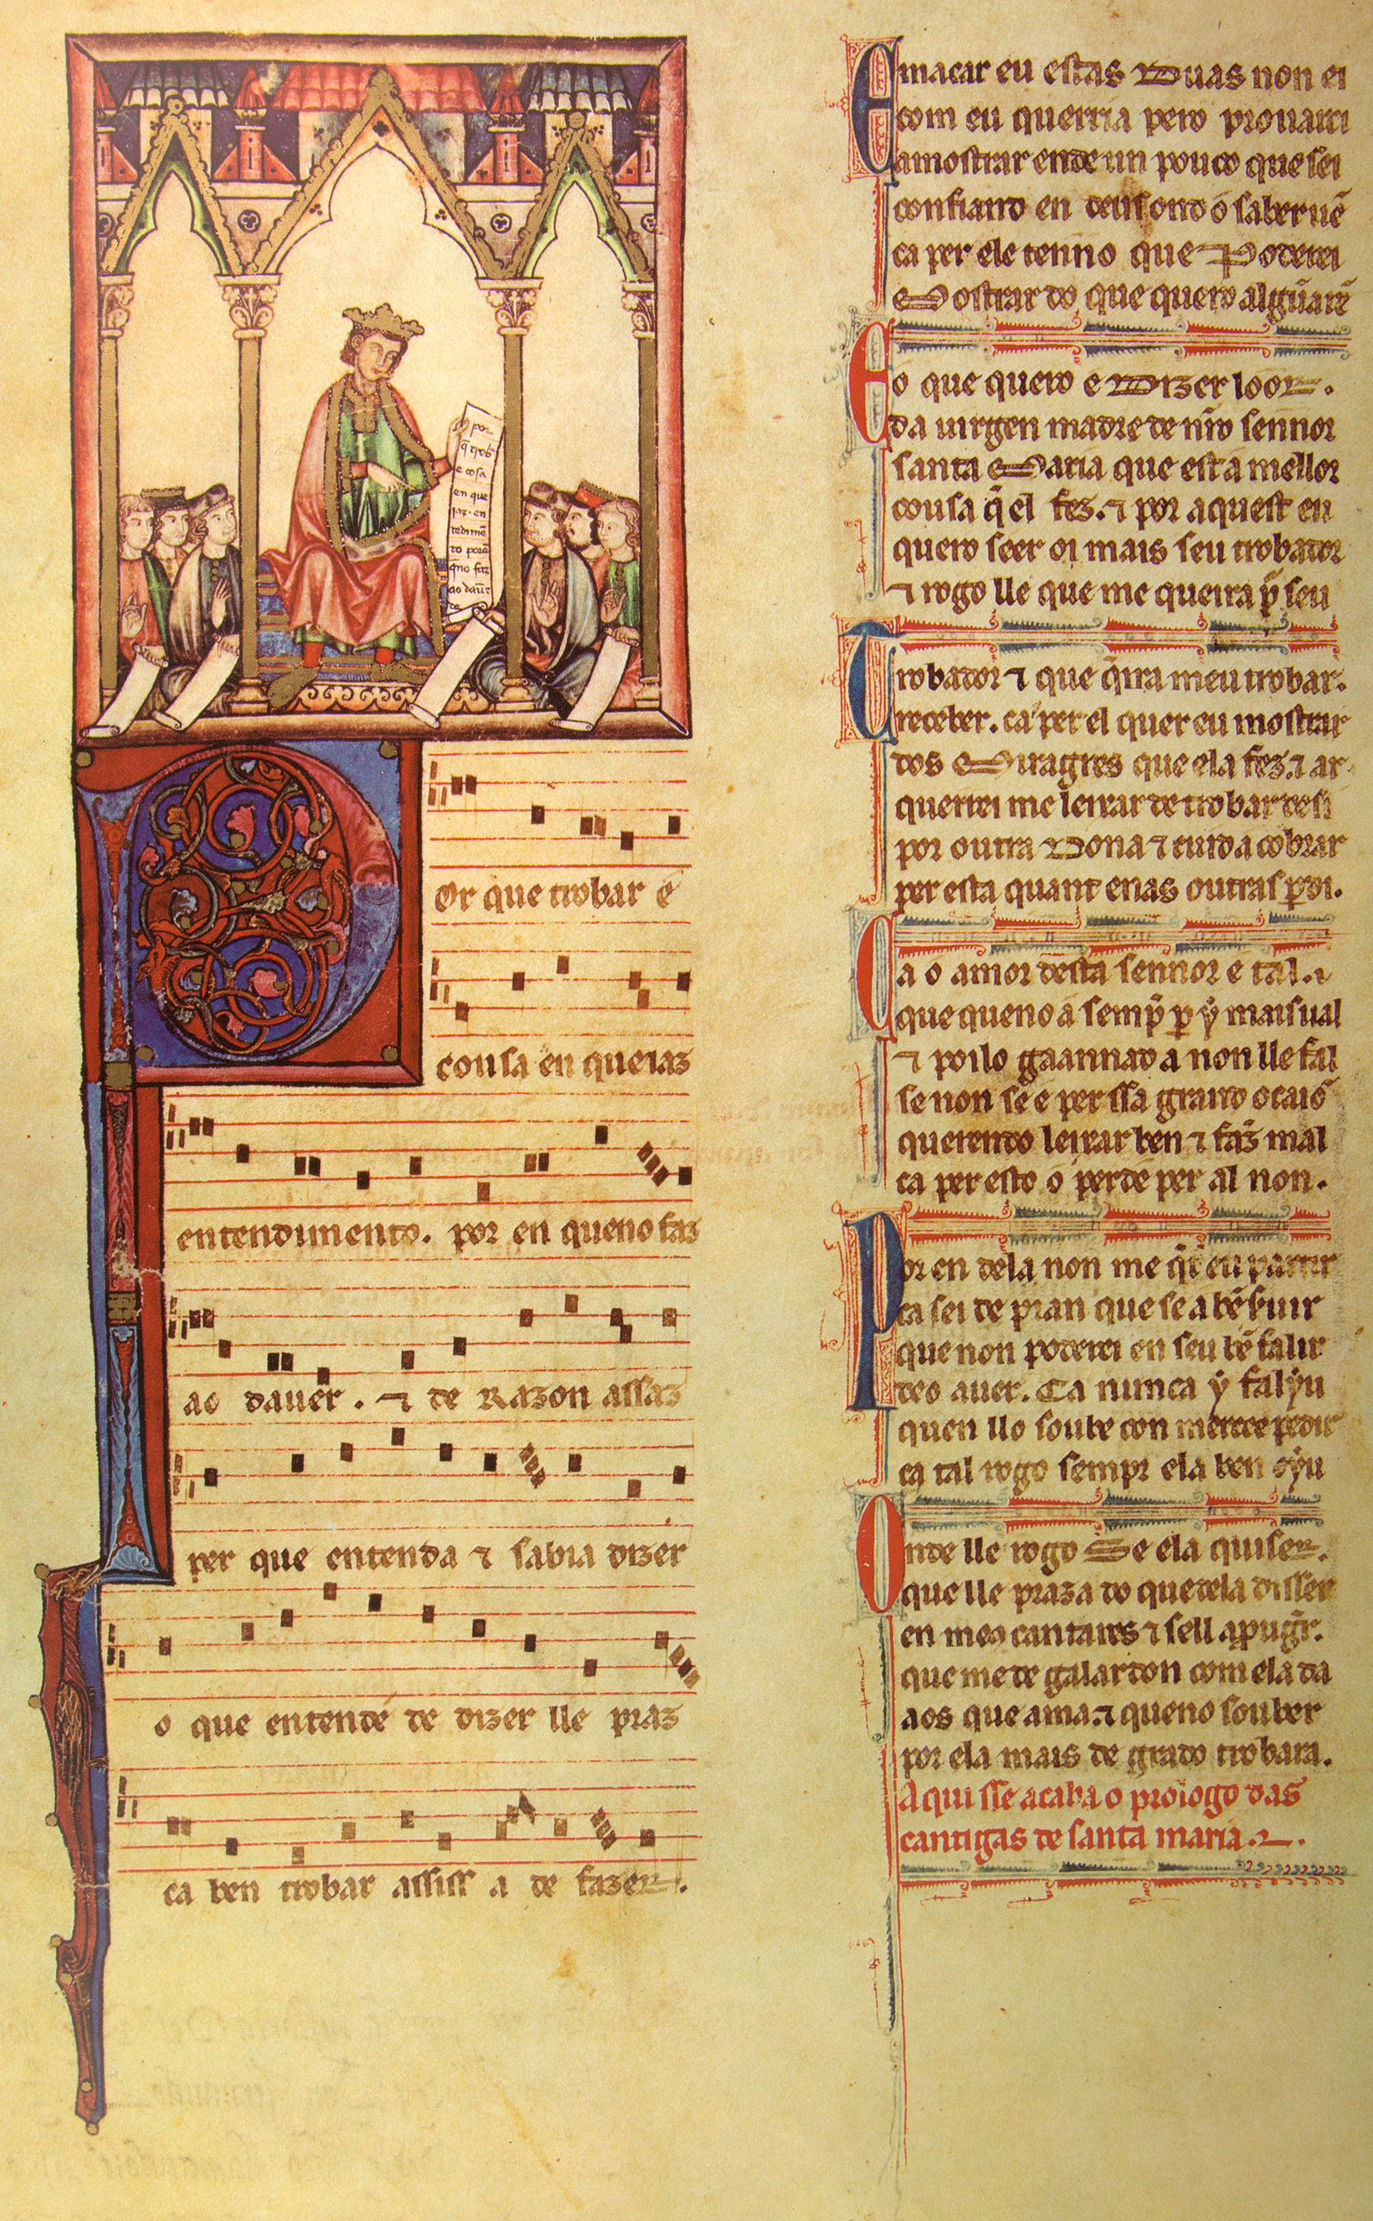 por
q̃ trob
e cosa
en que
iaz. en
tedimẽ
to porẽ
qno faz
ao dauer
de
Or que trobar e
cousa en que iaz
entendimento. por en queno faz
ao dauer. ⁊ de Razon assaz
per que entenda ⁊ sabia dizer
o que entende de dizer lle praz
ca ben trobar assiss a de fazer.
Emacar eu estas Duas non ei
com eu querria pero prouarei
amostrar ende un pouco que sei
confiand en deus ond o saber uẽ
ca per ele tenno que Poderei
Mostrar do que quero algũa rẽ
Eo que quero e Dizer loor.
da uirgen madre de nr̃o sennor
santa Maria que est a mellor
cousa q̃ el fez. ⁊ por aquest eu
quero seer oi mais seu trobador
⁊ rogo lle que me queira p̃ seu
Trobador ⁊ que q̃ira meu trobar.
receber. ca per el quer eu mostrar
dos Miragres que ela fez. ⁊ ar
querrei me leixar de trobar desi
por outra Dona ⁊ cuid a cobrar
per esta quant enas outras ꝑdi.
Ca o amor desta sennor e tal. ⁊
que queno a semp̃ ꝑ ẏ mais ual
⁊ poilo gaannad a non lle fal
se non se e per ssa grand ocaiõ
querendo leixar ben ⁊ faz̃ mal
ca per esto o perde per al non.
Por en dela non me q̃r eu partir
ca sei de pran que se a bẽ suir
que non poderei en seu bẽ falir
deo auer. Ca nunca ẏ falẏu
quen llo soube con merece pedir
ca tal rogo sempr ela ben oẏu
Onde lle rogo Se ela quiser.
que lle praza do que dela disser
en meos cantares ⁊ sell aprugr̃.
que me de galardon com ela da
aos que ama. ⁊ queno souber
por ela mais de grado trobara.
Aqui sse acaba o prologo das
cantigas de santa maria.